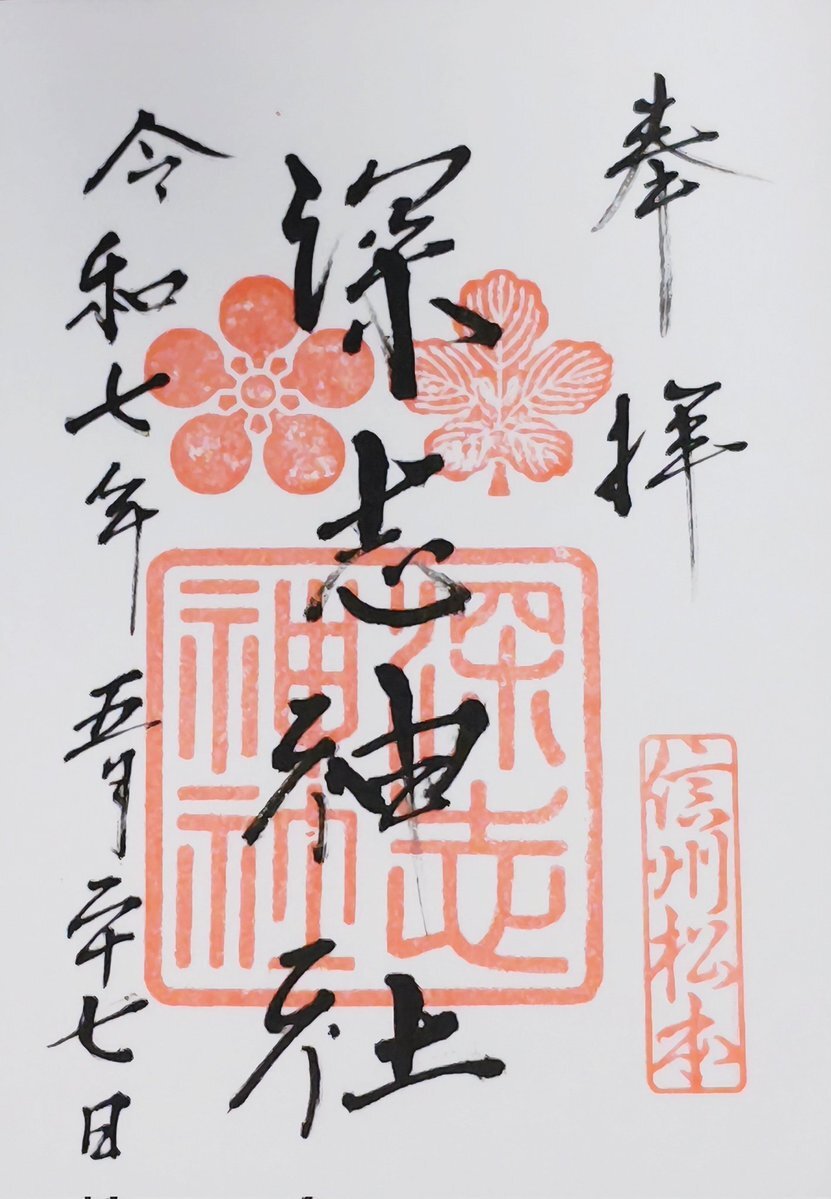 奉拝
信州松本
深志神社
深志
神社
令和七年五月二十七日